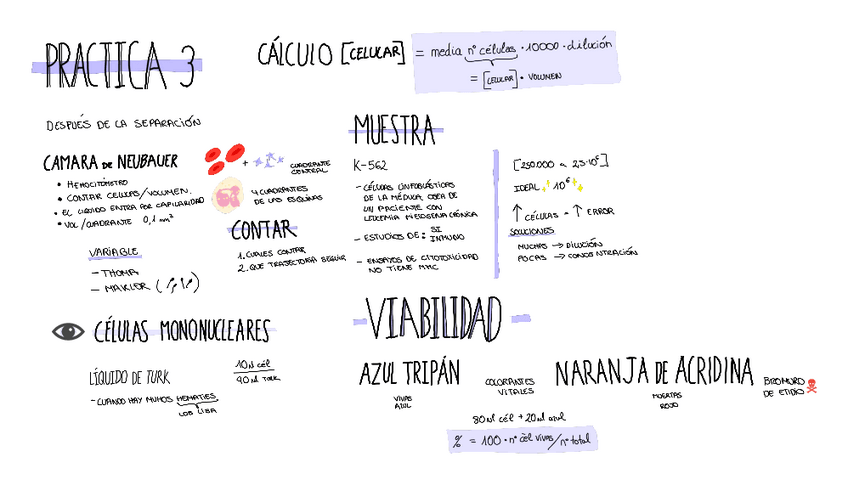 PRACTICA 3
CÁLCULO [CELULAR] = media nº células · 10000 · dilución
= [CELULAR] · VOLUMEN
DESPUÉS DE LA SEPARACIÓN
CAMARA DE NEUBAUER
• HEMOCITÓMETRO
• CONTAR CELULAS/VOLUMEN.
• EL LIQUIDO ENTRA POR CAPILARIDAD
• VOL/CUADRANTE 0,1 mm³
+ CUADRANTE
CENTRAL
4 CUADRANTES
DE LAS ESQUINAS
VARIABLE
- THOMA
- MAKLER
CONTAR
1. CUALES CONTAR
2. QUE TRAJECTORIA SEGUIR
MUESTRA
K-562
- CÉLULAS LINFOBLÁSTICAS
DE LA MÉDULA OSEA DE
UN PACIENTE CON
LEUCEMIA MIELOGENA CRÓNICA
- ESTUDIOS DE: SI
INMUNO
- ENSAYOS DE CITOTOXICIDAD
NO TIENE MHC
[250.000 a 2,5·10⁶]
IDEAL 10⁶
↑ CÉLULAS = ↑ ERROR
SOLUCIONES
MUCHAS → DILUCIÓN
POCAS → CONCENTRACIÓN
CÉLULAS MONONUCLEARES
LÍQUIDO DE TURK
- CUANDO HAY MUHOS HEMATIES
LOS LISA
10 ul cél
90 ul TURK
VIABILIDAD
AZUL TRIPÁN
VIVAS
AZUL
COLORANTES
VITALES
NARANJA DE ACRIDINA
MUERTAS
ROJO
BROMURO
DE ETIDIO
80 ul cél + 20 ul azul
% = 100 · nº cél vivas/nº total